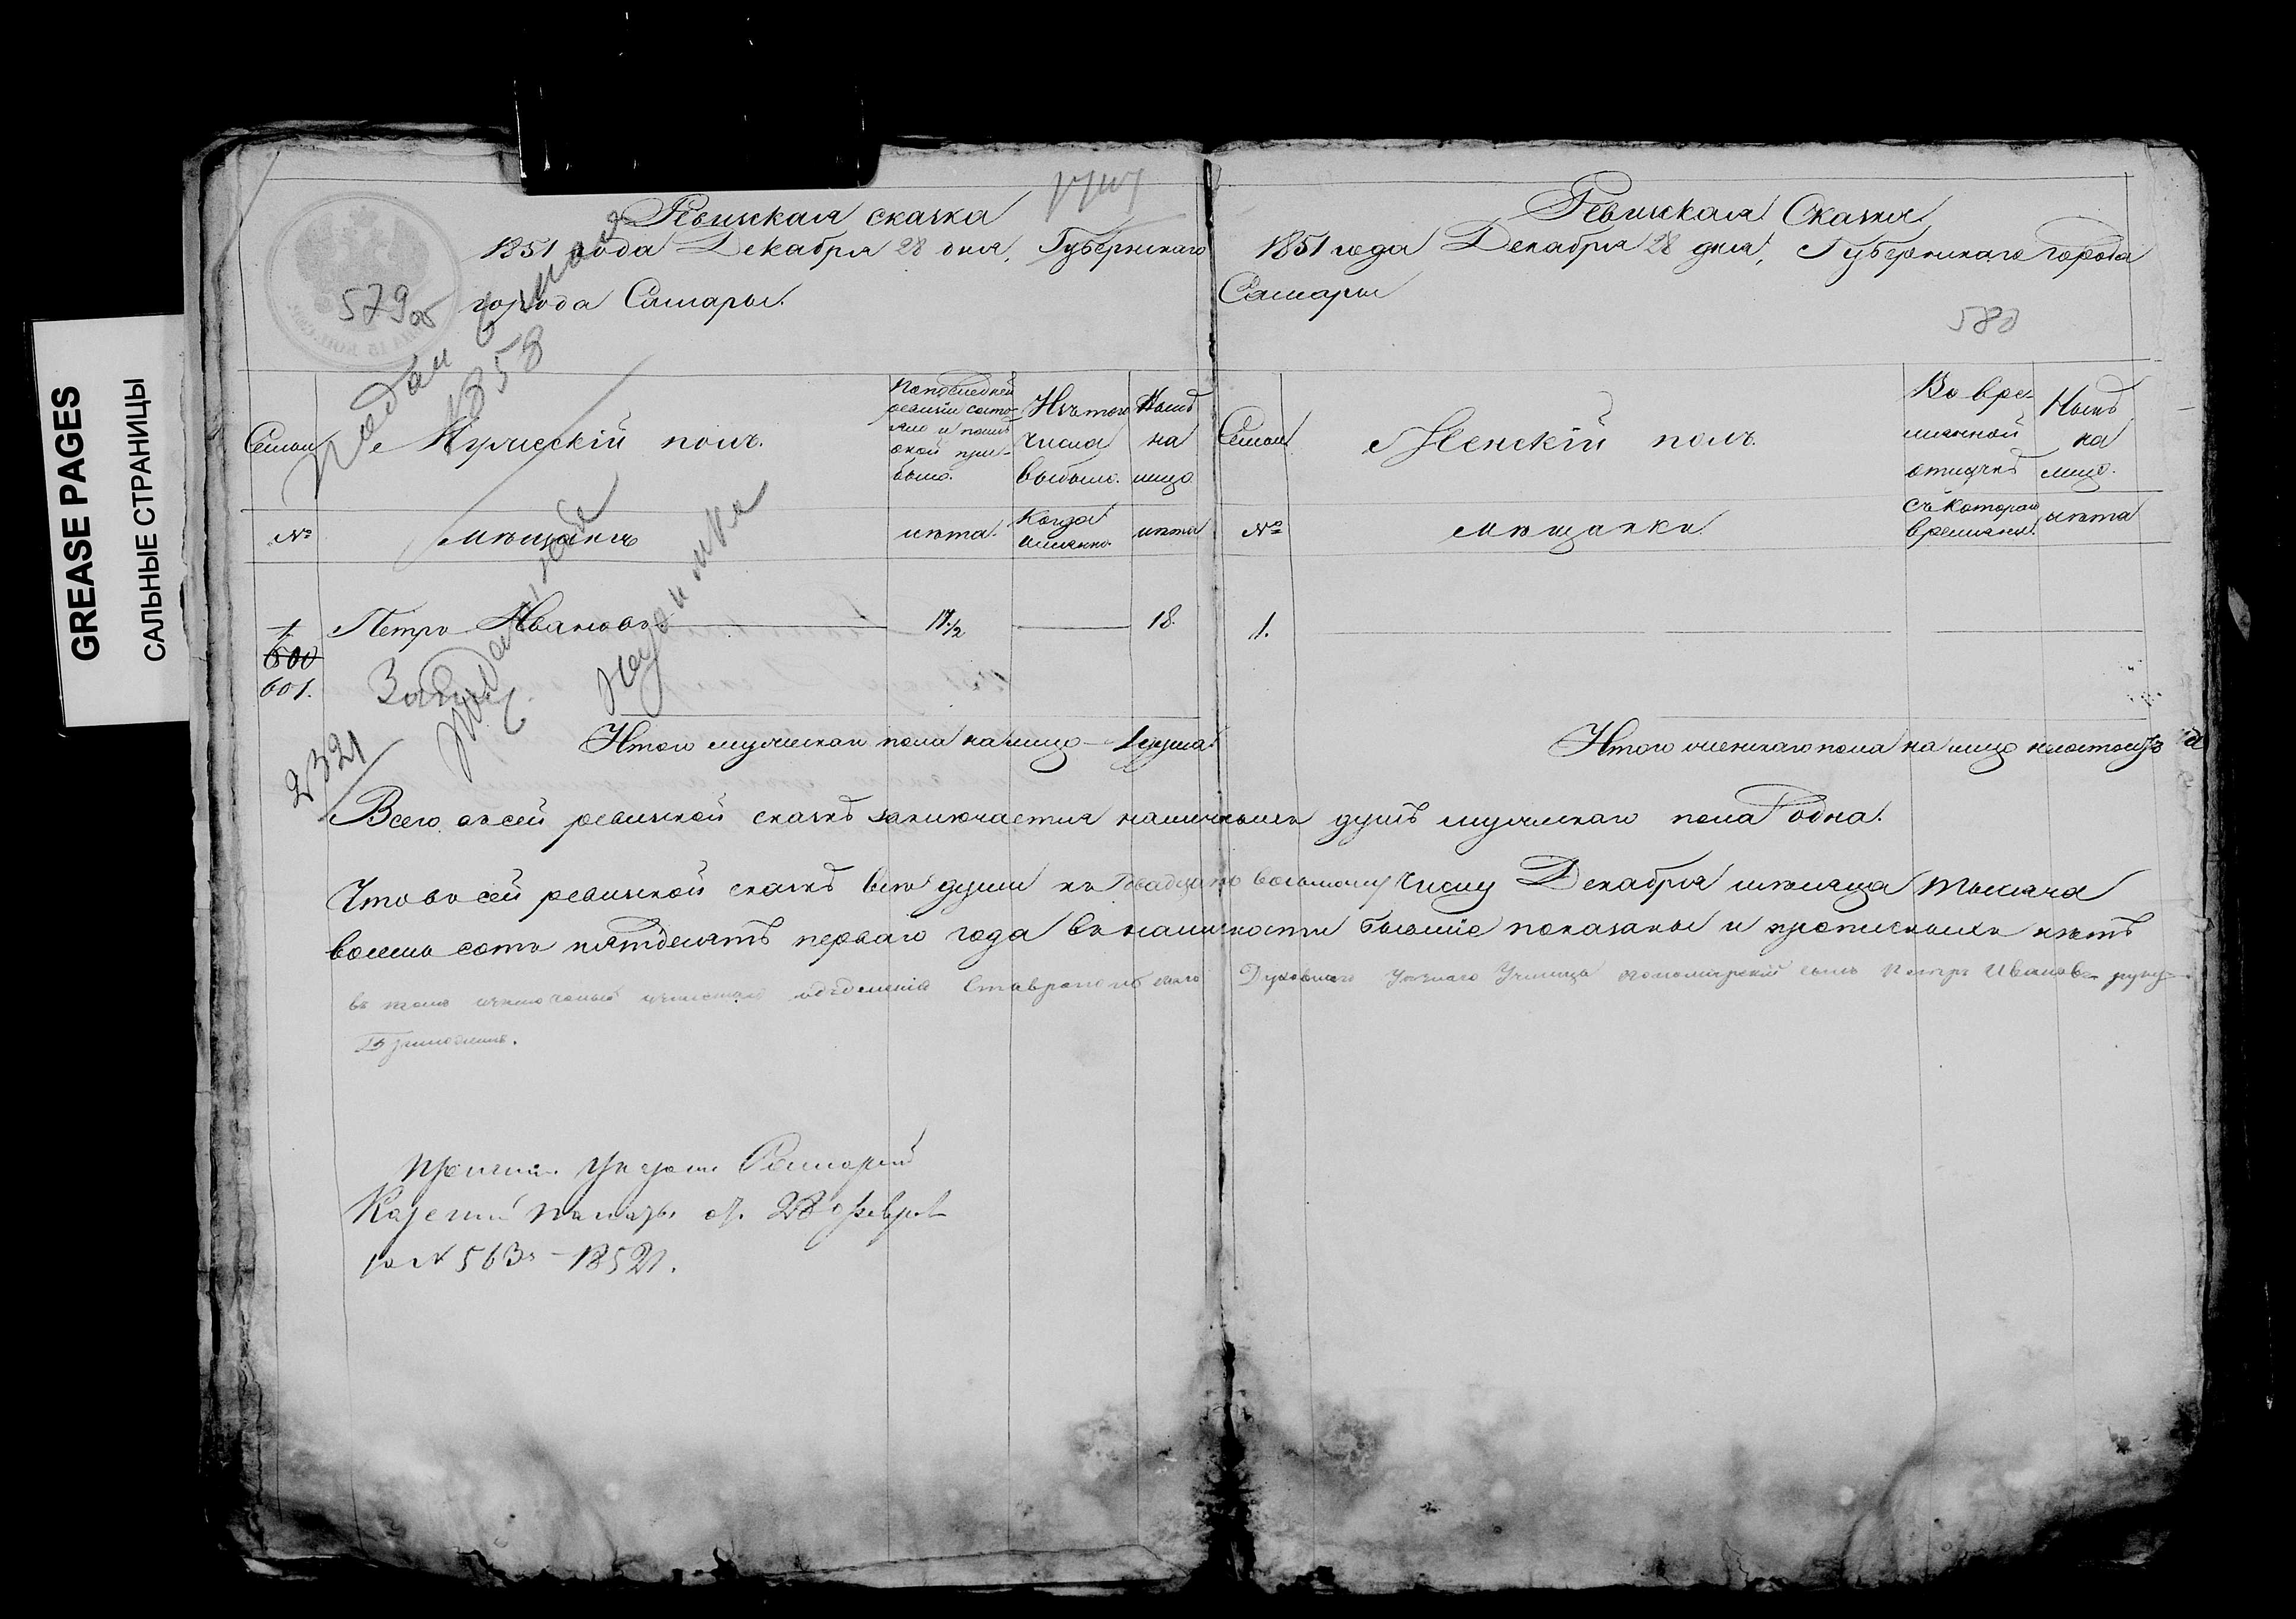 GREASE PAGES
САЛЬНЫЕ СТРАНИЦЫ
Ревизская сказка
1851 года Декабря 28 дня, Губернскаго
города Самары.
579об
Подан 6 мая
1858
Семьи
Мужескій полъ.
По последней ревизіи состояло и после оной прибыло.
Изъ того числа выбыло.
Ныне на лицо
№
мещанъ
лета.
Когда именно.
лета
1.
Петръ Ивановъ
17 1/2
18.
600
601.
2321
Итого мужеска пола на лицо 1 душа
Ревизская Сказка
1851 года Декабря 28 дня, Губернскаго города
Самары
580
Семьи
Женскій полъ.
Во временной отлучке
Ныне на лицо.
№
мещанки.
Съ котораго времени.
лета
1.
Итого женскаго пола на лицо
Всего въ сей ревизской сказкѣ заключается наличныхъ душъ мужескаго пола одна.
Что въ сей ревизской сказкѣ все души къ двадцать восьмому числу Декабря месяца тысяча
восемь сотъ пятдесятъ перваго года въ наличности бывшіе показаны и прописныхъ нетъ
въ томъ отделенія Ставропольскаго Духовнаго Училища пономарскій сынъ Петръ Ивановъ руку
приложилъ.
Казенной палаты от 28 Февр
за № 563 - 1852 г.